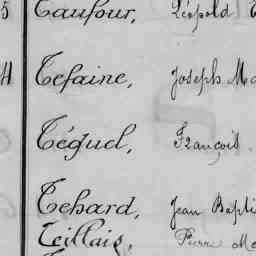 5 Taufour, Léopold
4 Tefaine, Joseph Ma
Téguel, François
Tehard, Jean Bapti
Teillais, Pierre Me